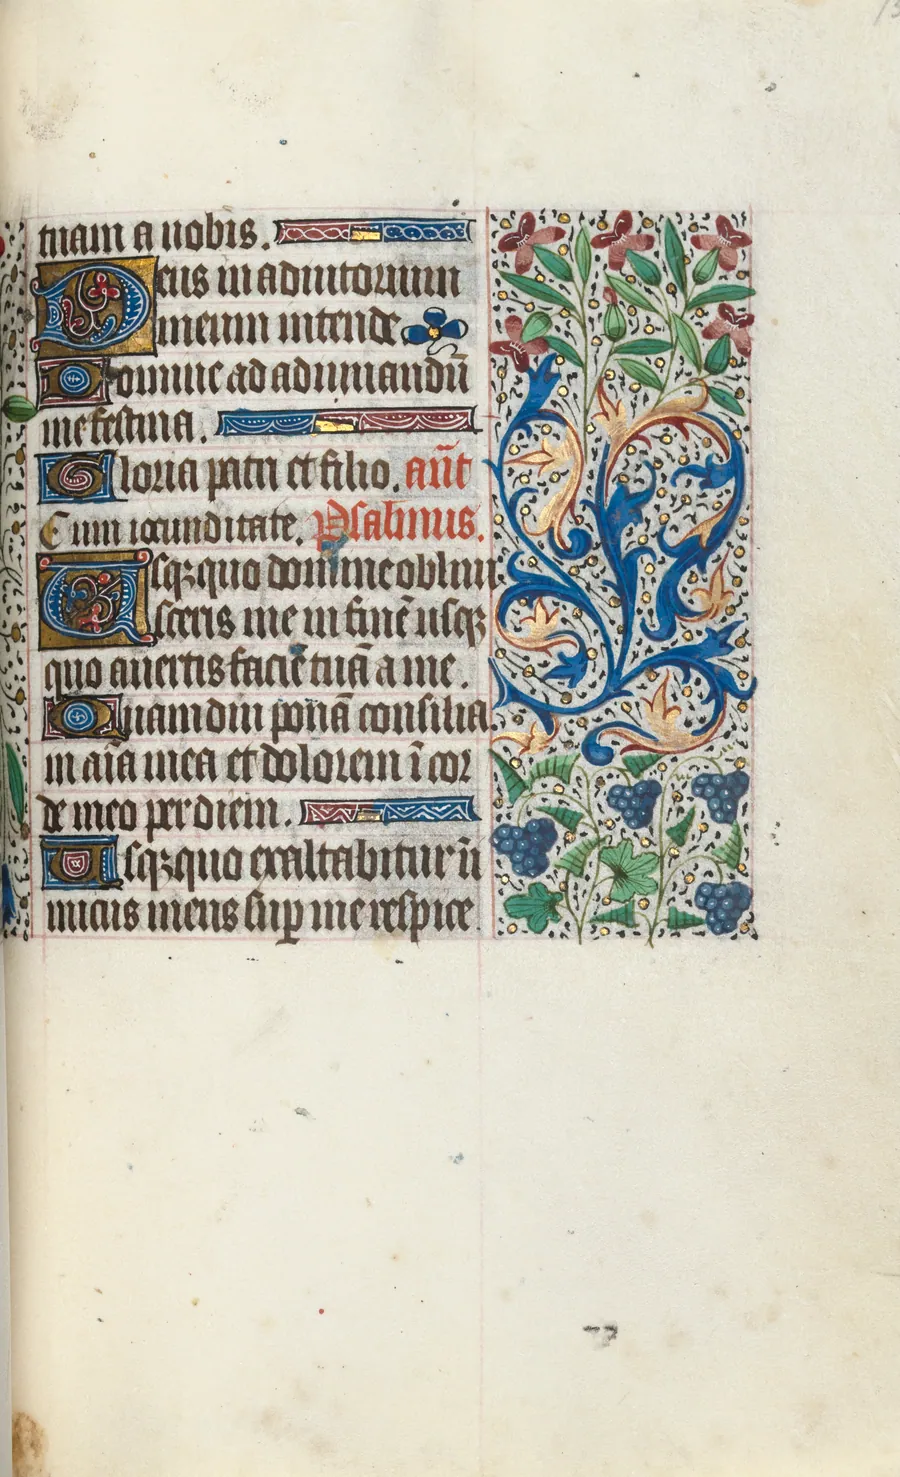 tuam a nobis.
Deus in adiutorium
meum intende
Domine ad adiuuandū
me festina.
Gloria patri et filio. an̄t
Cum iocunditate. Psalmus.
Usqꝫ quo domine obliui
sceris me in finē usqꝫ
quo auertis faciē tuā a me.
Quamdiu ponā consilia
in aīa mea et dolorem ī cor
de meo per diem.
Usqꝫ quo exaltabitur in̄
imicus meus suꝑ me respice